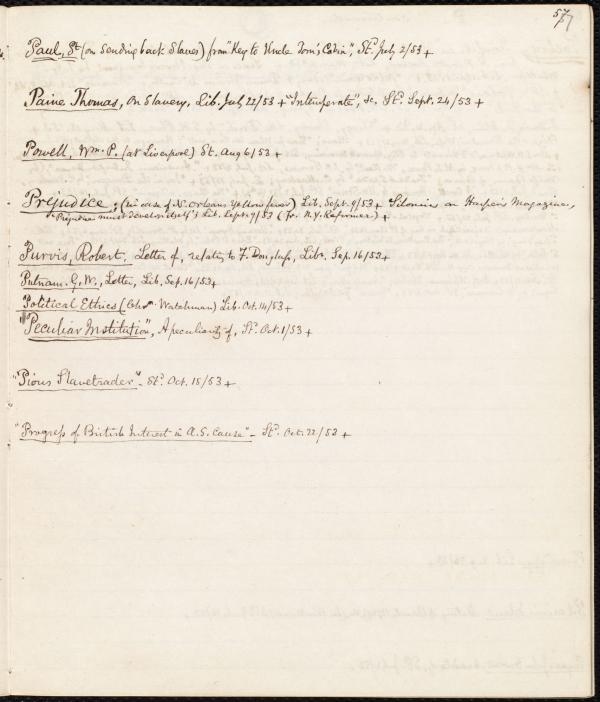 57
Paul, St. (on sending back Slaves) from "Key to Uncle Tom's Cabin", Std. July 2/53 +
Paine Thomas, on Slavery, Lib. July 22/53 + "Intemperate", &c. Std. Sept. 24/53 +
Powell, Wm. P. (at Liverpool) St. Aug 6/53 +
Prejudice; (in case of N. Orleans Yellow fever) Lib. Sept. 9/53 + on Harper's Magazine,
"Prejudice must develop itself", Lib. Sept. 9/53 (fr. N.Y. Reformer) +
Purvis, Robert. Letter of, relating to F. Douglass, Lib. Sep. 16/53 +
Putnam. G. W., Letter, Lib. Sep. 16/53 +
Political Ethics (Chrn. Watchman) Lib. Oct. 14/53 +
"Peculiar Institution", A peculiarity of, Std. Oct. 1/53 +
"Pious Slavetrader" - Std. Oct. 15/53 +
"Progress of British Interest in A.S. Cause" - Std. Oct. 22/53 +